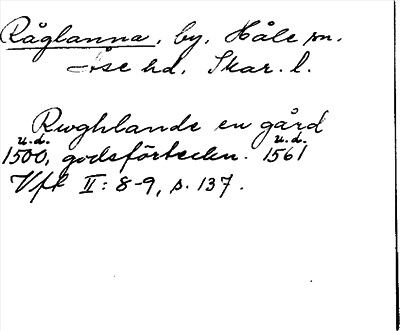 Råglanna, by, Håle sn.
Åse hd, Skar. l.
Rwghlande en gård
u.d. u.d.
1500, godsförteckn. 1561
Vfk II: 8-9, s. 137.